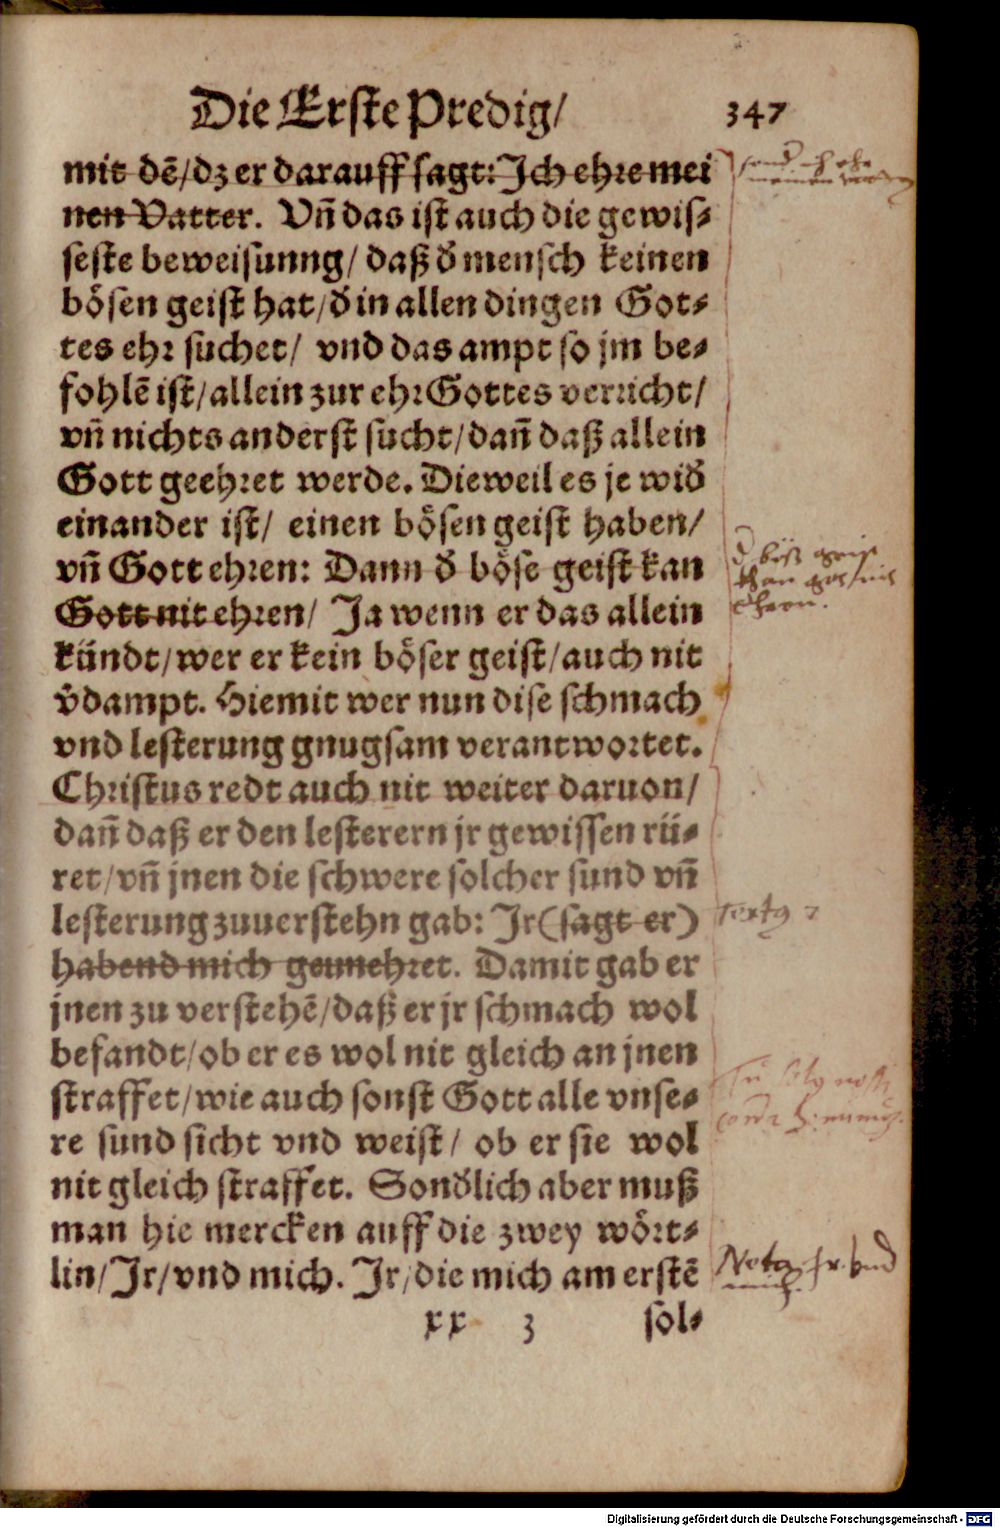 Die Erste Predig/ 347
mit dē/dz er darauff sagt: Ich ehre mei
nen Vatter. Vn̄ das ist auch die gewis⸗
seste beweisunng/ daß d̕ mensch keinen
bösen geist hat/d̕ in allen dingen Got⸗
tes ehr suchet/ vnd das ampt so jm be⸗
fohlē ist/allein zur ehr Gottes verricht/
vn̄ nichts anderst sucht/dan̄ daß allein
Gott geehret werde. Dieweil es je wid̕
einander ist/ einen bösen geist haben/
vn̄ Gott ehren: Dann d̕ böse geist kan
Gott nit ehren/ Ja wenn er das allein
kündt/wer er kein böser geist/auch nit
v̕dampt. Hiemit wer nun dise schmach
vnd lesterung gnugsam verantwortet.
Christus redt auch nit weiter daruon/
dan̄ daß er den lesterern jr gewissen rü⸗
ret/vn̄ jnen die schwere solcher sund vn̄
lesterung zuuerstehn gab: Ir (sagt er)
habend mich geunehret. Damit gab er
jnen zu verstehē/daß er jr schmach wol
befandt/ob er es wol nit gleich an jnen
straffet/wie auch sonst Gott alle vnse⸗
re sund sicht vnd weist/ ob er sie wol
nit gleich straffet. Sond̕lich aber muß
man hie mercken auff die zwey wört⸗
lin/Ir/vnd mich. Ir/die mich am erstē
xx 3 sol⸗
d böß geist
khan got nit
ehren.
Nota. Ir. vnd
mich.
Digitalisierung gefördert durch die Deutsche Forschungsgemeinschaft - DFG